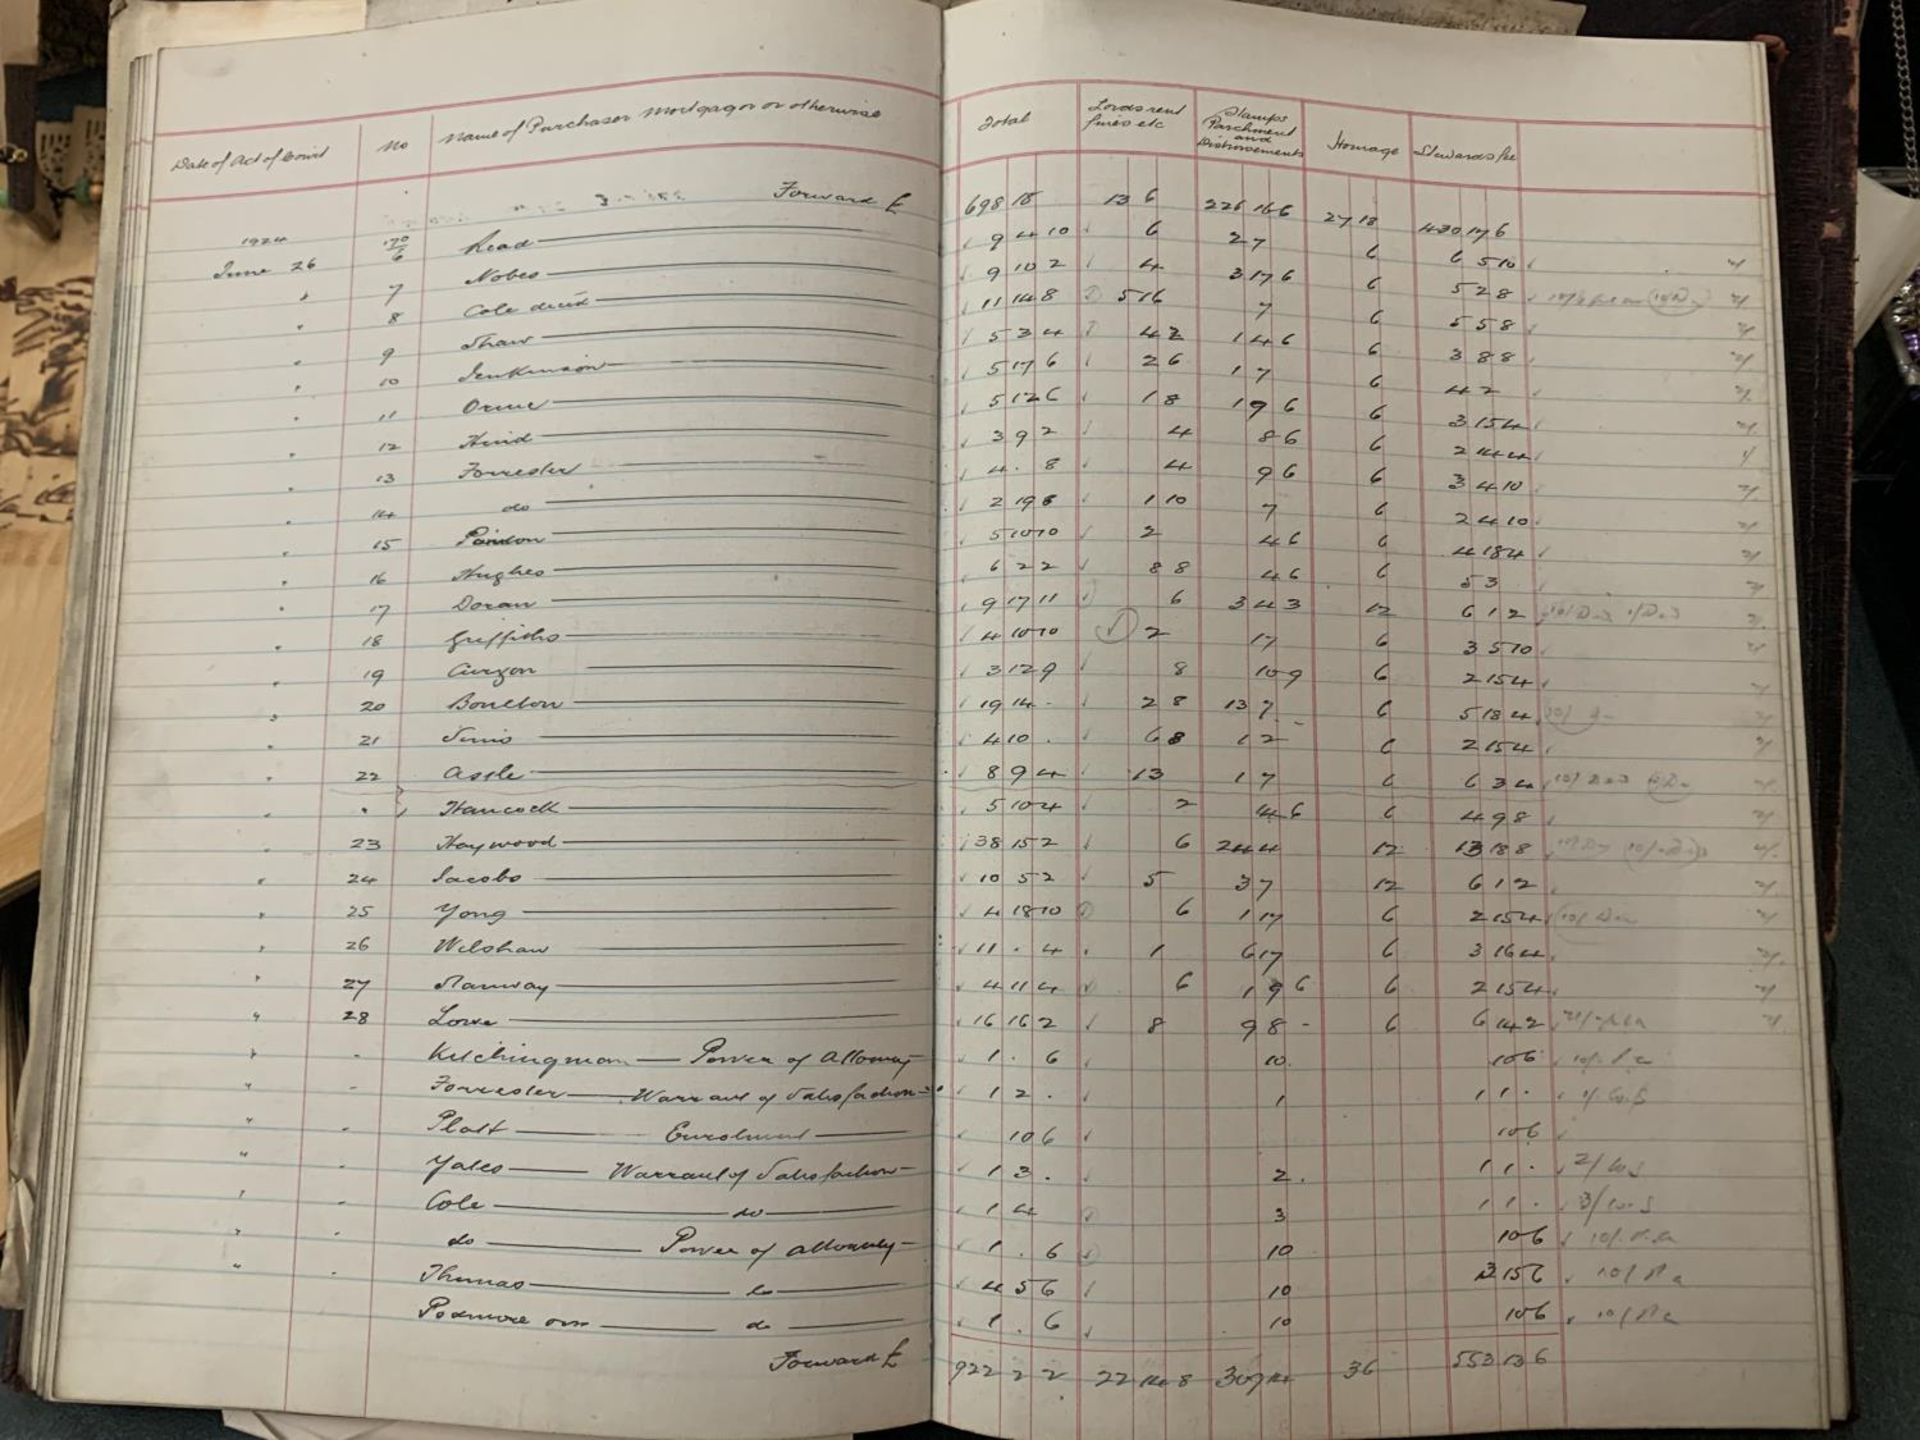 Date of Act of Court No Name of Purchaser Mortgagor or otherwise Total Lords rent fines etc Stamps Parchment and Disbursements Homage Stewards fee
Forward £ 698 18 13 6 226 16 6 27 18 430 17 6
1924
June 26 170/6 Read 9 4 10 6 2 7 6 6 5 10
" 7 Nobes 9 10 2 4 3 17 6 6 5 2 8
" 8 Cole decd 11 14 8 5 16 7 6 5 5 8
" 9 Shaw 5 3 4 4 2 1 4 6 6 3 8 8
" 10 Jenkinson 5 17 6 2 6 1 7 6 4 2
" 11 Orme 5 12 6 1 8 1 9 6 6 3 15 4
" 12 Hind 3 9 2 4 8 6 6 2 14 4
" 13 Forrester 4 . 8 4 9 6 6 3 4 10
" 14 do 2 19 8 1 10 7 6 2 4 10
" 15 5 10 10 2 4 6 6 4 18 4
" 16 Hughes 6 2 2 8 8 4 6 6 5 3
" 17 Doran 9 17 11 6 3 4 3 12 6 1 2
" 18 Griffiths 4 10 10 2 17 6 3 5 10
" 19 Curzon 3 12 9 8 10 9 6 2 15 4
" 20 Boulton 19 14 - 2 8 13 7 - 6 5 18 4
" 21 4 10 . 6 8 1 2 6 2 15 4
" 22 Astle 8 9 4 13 1 7 6 6 3 4
" " Hancock 5 10 4 2 4 6 6 4 9 8
" 23 Haywood 38 15 2 6 24 4 4 12 13 18 8
" 24 Jacobs 10 5 2 5 3 7 12 6 1 2
" 25 Yong 4 18 10 6 1 17 6 2 15 4
" 26 Welshaw 11 . 4 1 6 17 6 3 16 4
" 27 4 11 4 6 1 9 6 6 2 15 4
" 28 Lowe 16 16 2 8 9 8 - 6 6 14 2
" - Kitchingman Power of Attorney 1 . 6 10. 10 6
" - Forrester Warrant of Satisfaction 1 2 . 1 1 1 .
" - Platt Enrolment 10 6 10 6
" - Yates Warrant of Satisfaction 1 3 . 2 . 1 1 . 2/ W S
" - Cole do 1 4 3 1 1 .
" - do Power of Attorney 1 . 6 10 10 6
" - Thomas do 4 5 6 10 3 15 6
Podmore do 1 . 6 10 10 6
Forward £ 922 2 2 22 14 8 309 14 36 553 13 6